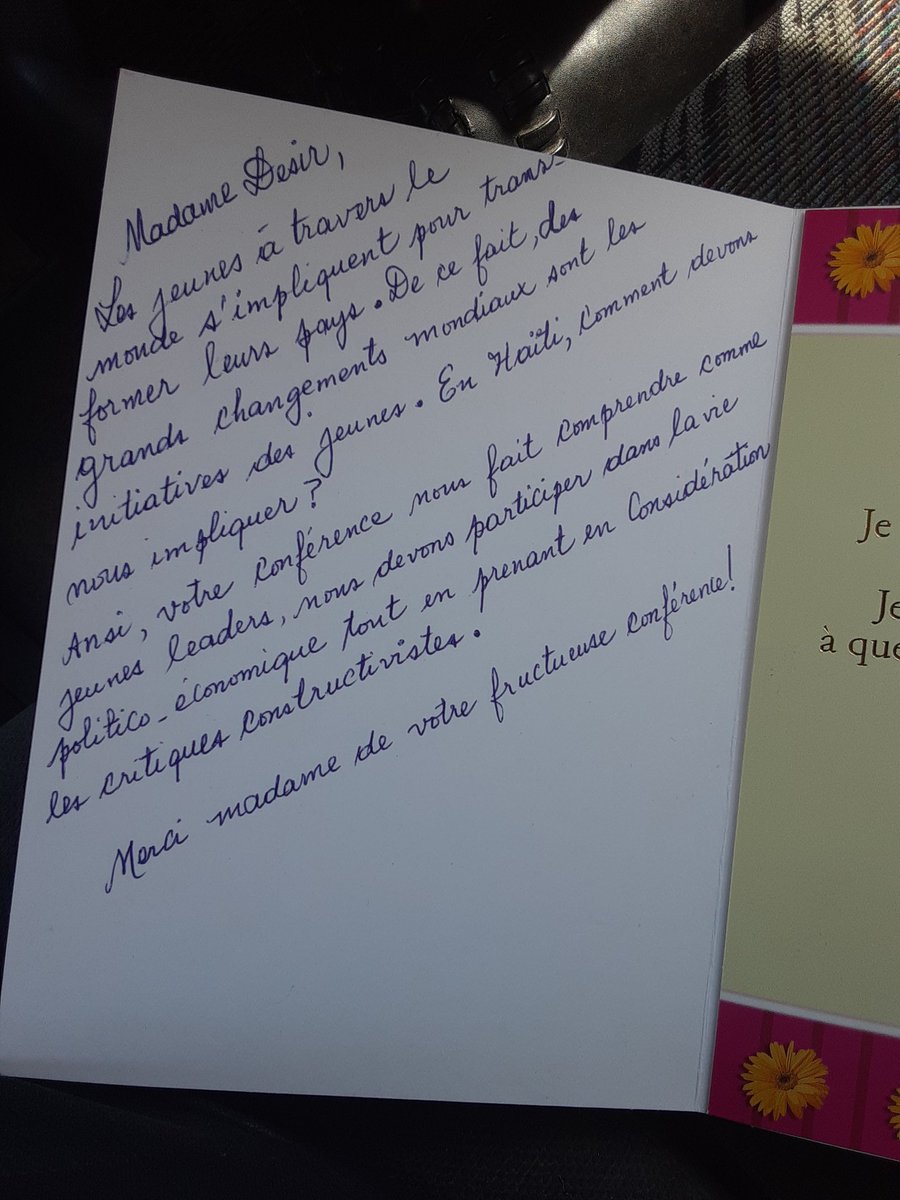 Madame Desir,
Les jeunes à travers le
monde s'impliquent pour trans-
former leurs pays. De ce fait, des
grands changements mondiaux sont les
initiatives des jeunes. En Haïti, comment devons
nous impliquer ?
Ansi, votre conférence nous fait comprendre comme
jeunes leaders, nous devons participer dans la vie
politico-économique tout en prenant en considération
les critiques constructivistes.
Merci madame de votre fructueuse conférence!
Je
Je
à que